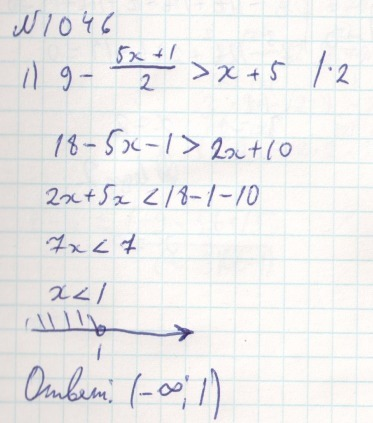 №1046
1) 9 - (5x+1)/2 > x+5 /·2
18-5x-1>2x+10
2x+5x<18-1-10
7x<7
x<1
1
Ответ: (-∞; 1)